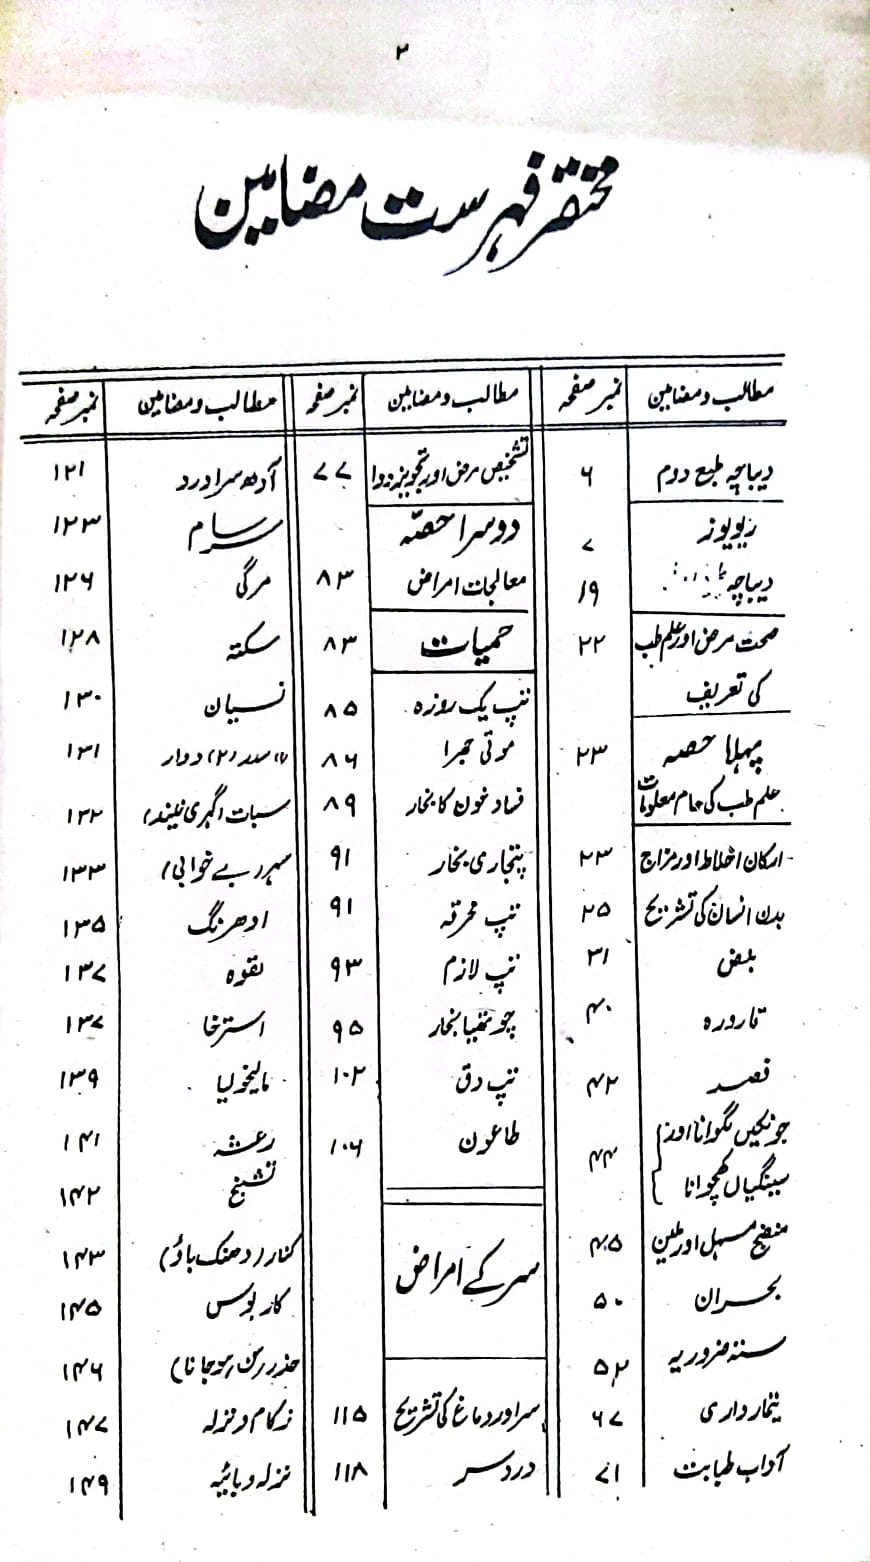 ۲
مختصر فہرست مضامین
مطالب و مضامین نمبر صفحہ
دیباچہ طبع دوم ۶
ریویوز ۷
دیباچہ ۱۹
صحت مرض اور علم طب ۲۲
کی تعریف
پہلا حصہ ۲۳
علم طب کی عام معلومات
ارکان اخلاط اور مزاج ۲۳
بدن انسان کی تشریح ۲۵
نبض ۳۱
قارورہ ۴۰
فصد ۴۲
جونکیں لگوانا اور
سینگیاں کھچوانا ۴۴
منضج مسہل اور ملین ۴۵
بحران ۵۰
ستہ ضروریہ ۵۲
تیمارداری ۶۷
آداب طبابت ۷۱
مطالب و مضامین نمبر صفحہ
تشخیص مرض اور تجویز دوا ۷۷
دوسرا حصہ
معالجات امراض ۸۳
حمیات ۸۳
تپ یک روزہ ۸۵
موتی جھرا ۸۶
فساد خون کا بخار ۸۹
تجاری بخار ۹۱
تپ محرقہ ۹۱
تپ لازم ۹۳
چوتھیا بخار ۹۵
تپ دق ۱۰۲
طاعون ۱۰۶
سر کے امراض
سر اور دماغ کی تشریح ۱۱۵
درد سر ۱۱۸
مطالب و مضامین نمبر صفحہ
آدھ سرا درد ۱۲۱
سرسام ۱۲۳
مرگی ۱۲۶
سکتہ ۱۲۸
نسیان ۱۳۰
(۱) سدر (۲) دوار ۱۳۱
سبات (گہری نیند) ۱۳۲
سہر (بے خوابی) ۱۳۳
ادھرنگ ۱۳۵
لقوہ ۱۳۷
استرخا ۱۳۷
مالیخولیا ۱۳۹
رعشہ ۱۴۱
تشنج ۱۴۲
کزاز (دھنک باؤ) ۱۴۳
کابوس ۱۴۵
خدر (سن ہو جانا) ۱۴۶
زکام و نزلہ ۱۴۷
نزلہ وبائیہ ۱۴۹